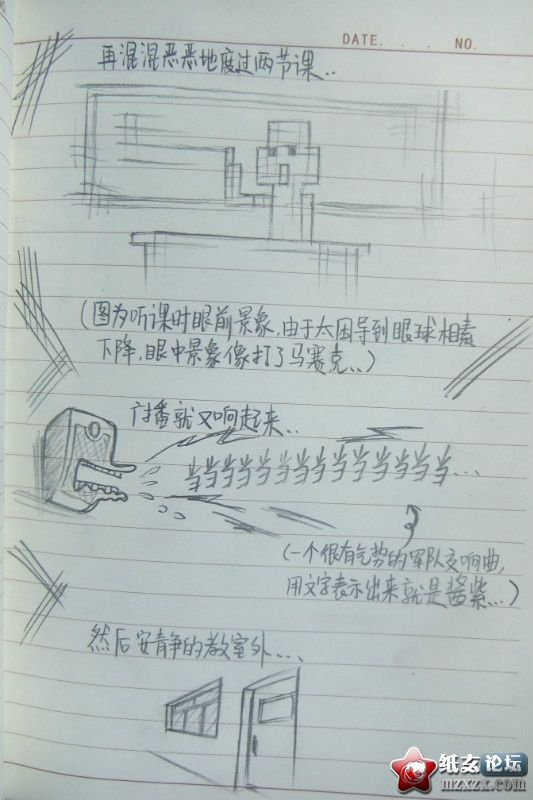 DATE. . . . NO.
再混混恶恶地度过两节课..
(图为听课时眼前景象,由于太困导到眼球相素
下降,眼中景象像打了马赛克..)
广播就又响起来..
当当当当当当当当当当当当当当当...
(一个很有气势的军队交响曲,
用文字表示出来就是酱紫...)
然后安静的教室外....
纸玄论坛
mzxzx.com